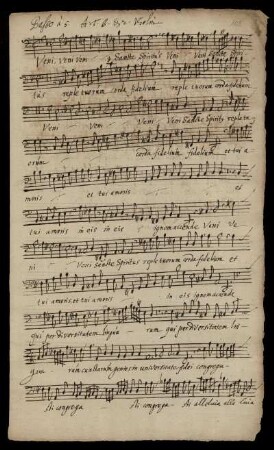 Basso à 5 A. T. B. è 2 Violini
Veni veni veni Sancte Spiritus Veni Veni Sancte Spiri
tus reple tuorum corda fidelium reple tuorum corda fidelium
Veni Veni Veni Veni Sancte Spiritus reple tu
orum corda fidelium fidelium et tui a
moris et tui amoris et
tui amoris in eis in eis ignem accende Veni Ve
ni Veni Sancte Spiritus reple tuorum corda fidelium et
tui amoris et tui amoris in eis ignem accende
qui per diversitatem lingua rum qui per diversitatem lin
gua rum cunctarum gentes in unitate fidei congrega
sti congrega sti congrega sti alleluia alle luia